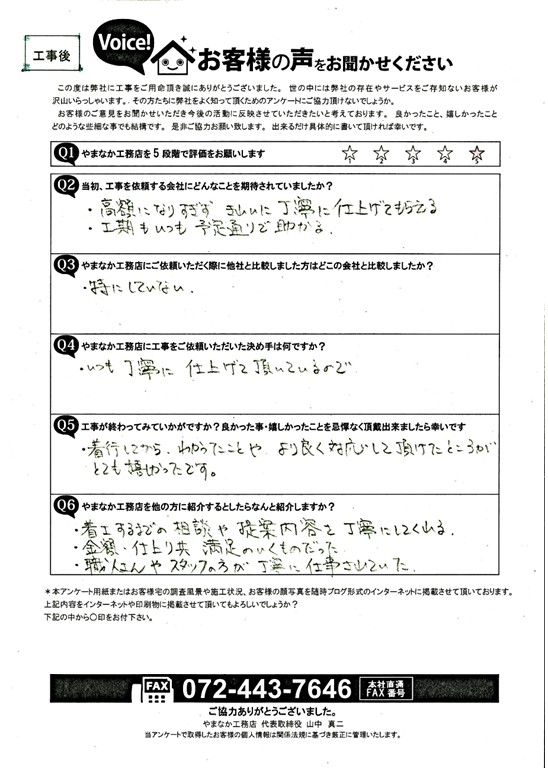 工事後
Voice!
お客様の声をお聞かせください
この度は弊社に工事をご用命頂き誠にありがとうございました。世の中には弊社の存在やサービスをご存知ないお客様が
沢山いらっしゃいます。その方たちに弊社をよく知って頂くためのアンケートにご協力頂けないでしょうか。
お客様のご意見をお聞かせいただき今後の活動に反映させていただきたいと考えております。良かったこと、嬉しかったこと
どのような些細な事でも結構です。是非ご協力お願い致します。出来るだけ具体的に書いて頂ければ幸いです。
Q1 やまなか工務店を5段階で評価をお願いします
1 2 3 4 5
Q2 当初、工事を依頼する会社にどんなことを期待されていましたか?
・高額になりすぎず きれいに丁寧に仕上げてもらえる
・工期もいつも予定通りで助かる.
Q3 やまなか工務店にご依頼いただく際に他社と比較しました方はどこの会社と比較しましたか?
・特にしていない.
Q4 やまなか工務店に工事をご依頼いただいた決め手は何ですか?
・いつも丁寧に仕上げて頂いているので
Q5 工事が終わってみていかがですか?良かった事・嬉しかったことを忌憚なく頂戴出来ましたら幸いです
・着行してから、わかったことや より良く対応して頂けたところが
とても嬉かったです。
Q6 やまなか工務店を他の方に紹介するとしたらなんと紹介しますか?
・着工するまでの相談や提案内容を丁寧にしてくれる.
・金額・仕上り共 満足のいくものだった.
・職人さんやスタッフの方が丁寧に仕事されていた.
*本アンケート用紙またはお客様宅の調査風景や施工状況、お客様の顔写真を随時ブログ形式のインターネットに掲載させて頂いております。
上記内容をインターネットや印刷物に掲載させて頂いてもよろしいでしょうか?
下記の中から〇印をお付下さい。
FAX 072-443-7646 本社直通
FAX番号
ご協力ありがとうございました。
やまなか工務店 代表取締役 山中 真二
当アンケートで取得したお客様の個人情報は関係法規に基づき厳正に管理いたします。